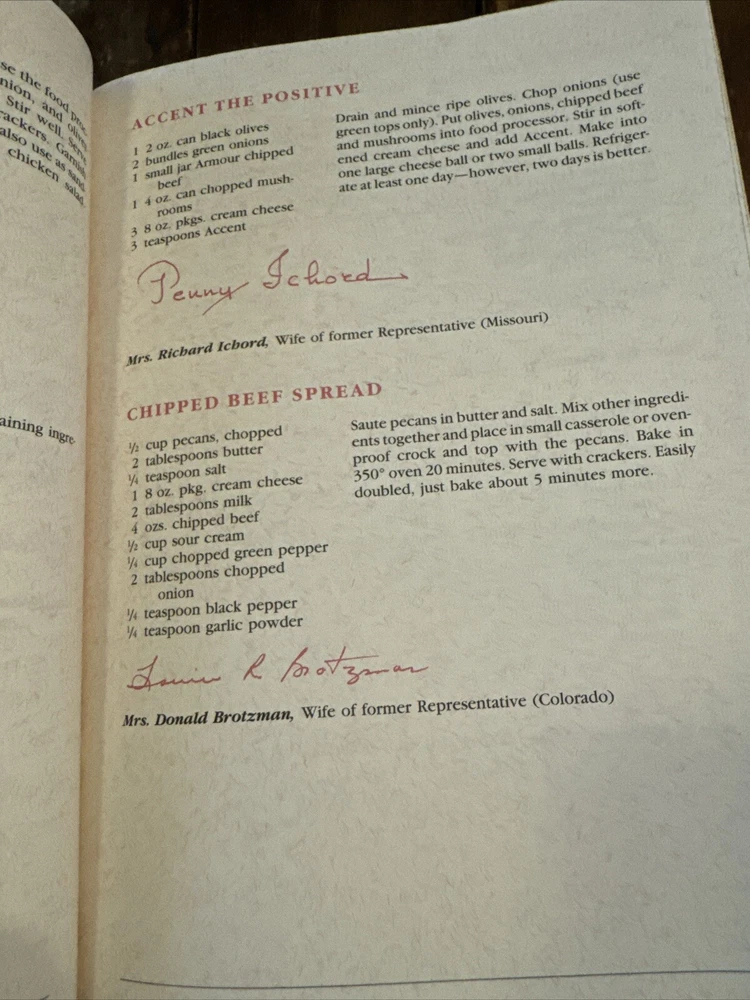 se the food proc-
nion, and olives.
Stir well. Serve
rackers. Garnish
also use as sand
chicken salad.
aining ingre-
ACCENT THE POSITIVE
1 2 oz. can black olives
2 bundles green onions
1 small jar Armour chipped
beef
1 4 oz. can chopped mush-
rooms
3 8 oz. pkgs. cream cheese
3 teaspoons Accent
Drain and mince ripe olives. Chop onions (use
green tops only). Put olives, onions, chipped beef
and mushrooms into food processor. Stir in soft-
ened cream cheese and add Accent. Make into
one large cheese ball or two small balls. Refriger-
ate at least one day—however, two days is better.
Penny Ichord
Mrs. Richard Ichord, Wife of former Representative (Missouri)
CHIPPED BEEF SPREAD
½ cup pecans, chopped
2 tablespoons butter
¼ teaspoon salt
1 8 oz. pkg. cream cheese
2 tablespoons milk
4 ozs. chipped beef
½ cup sour cream
¼ cup chopped green pepper
2 tablespoons chopped
onion
¼ teaspoon black pepper
¼ teaspoon garlic powder
Saute pecans in butter and salt. Mix other ingredi-
ents together and place in small casserole or oven-
proof crock and top with the pecans. Bake in
350° oven 20 minutes. Serve with crackers. Easily
doubled, just bake about 5 minutes more.
R Brotzman
Mrs. Donald Brotzman, Wife of former Representative (Colorado)